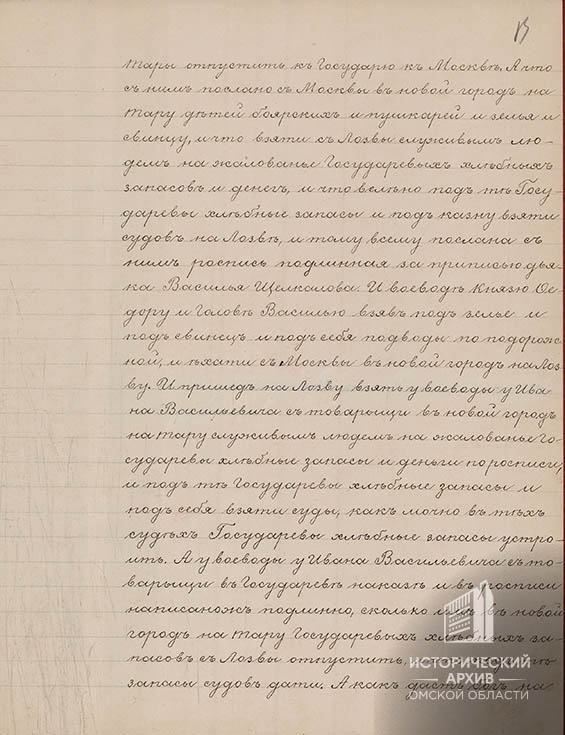 13
тары отпустить къ Государю къ Москвѣ. А что
съ нимъ послано съ Москвы въ новой городъ на
Тару дѣтей боярскихъ и пушкарей и зелья и
свинцу, и что взяти съ Лозвы служивымъ лю-
демъ на жалованье Государевыхъ хлѣбныхъ
запасовъ и денегъ, и что велѣно подъ тѣ Госу-
даревы хлѣбные запасы и подъ казну взяти
судовъ на Лозвѣ, и тому всему послана съ
нимъ роспись подлинная за приписью дья-
ка Василья Щелкалова. И воеводѣ Князю Ѳе-
дору и Головѣ Василью взявъ подъ зелье и
подъ свинецъ и подъ себя подводы по подорож-
ной, и ѣхати съ Москвы въ новой городъ на Лоз-
ву. И пришедъ на Лозву взять у воеводы у Ива
на Васильевича съ товарыщи въ новой городъ
на Тару служивымъ людемъ на жалованье Го-
сударевы хлѣбные запасы и деньги по росписи,
и подъ тѣ Государевы хлѣбные запасы и
подъ себя взяти суды, какъ мочно въ тѣхъ
судѣхъ Государевы хлѣбные запасы устро-
ить. А у воеводы у Ивана Васильевича съ то-
варыщи въ Государевѣ наказѣ и въ росписи
написаножъ подлинно, сколько въ новой
городъ на Тару Государевыхъ хлѣбныхъ за-
пасовъ съ Лозвы отпустить,
запасы судовъ дати. А какъ дастъ Богъ на
ИСТОРИЧЕСКИЙ
АРХИВ
ОМСКОЙ ОБЛАСТИ